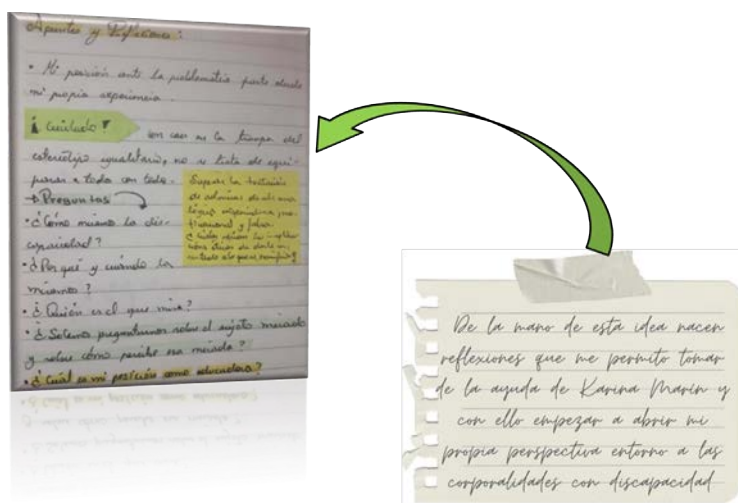 Apuntes y Reflexiones:
• Mi posición ante la problemática parte desde
mi propia experiencia.
¡Cuidado! con caer en la trampa del
estereotipo igualitario, no se trata de equi-
parar a todo con todo.
→ Preguntas
• ¿Cómo miramos la dis-
capacidad?
• ¿Por qué y cuándo los
miramos?
• ¿Quién es el que mira?
• ¿Solemos preguntarnos sobre el sujeto mirado
y sobre cómo percibe esa mirada?
• ¿Cuál es mi posición como educadora?
Superar la tentación
de
lógica
y
De la mano de esta idea nacen
reflexiones que me permito tomar
de la ayuda de Karina Marín y
con ello empezar a abrir mi
propia perspectiva entorno a las
corporalidades con discapacidad